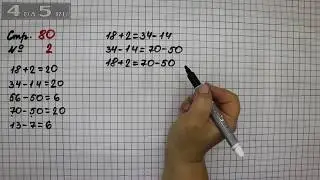 4 DA 5 .RU
Стр. 80
№ 2
18+2=20
34-14=20
56-50=6
70-50=20
13-7=6
18+2=34-14
34-14=70-50
18+2=70-50